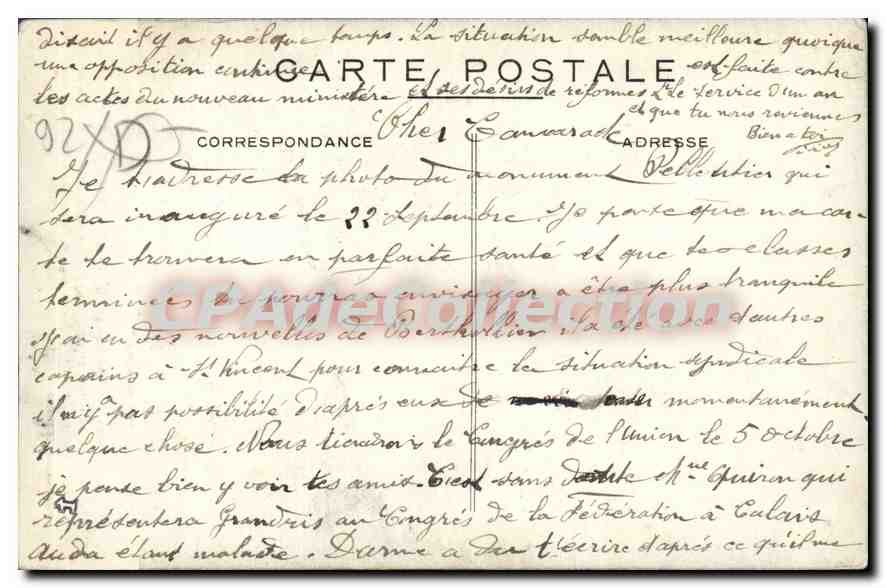 disait il y a quelque temps. La situation semble meilleure quoique
une opposition continue est faite contre
CARTE POSTALE
les actes du nouveau ministère et ses désirs de réformes le service d'un an
et que tu nous reviennes
Bien à toi
92
D
CORRESPONDANCE
Cher Camarade
ADRESSE
Je t'adresse la photo du monument Pelloutier qui
sera inauguré le 22 Septembre. Je pense que ma car-
te te trouvera en parfaite santé et que tes classes
terminées tu pourras envisager a être plus tranquile
J'ai eu des nouvelles de Berthollier il a été avec d'autres
copains à St Vincent pour connaitre la situation syndicale
il n'y a pas possibilité d'après eux de momentanément
quelque chose. Nous tiendrons le Congrés de l'Union le 5 octobre
je pense bien y voir tes amis. C'est sans doute Mme Guiron qui
représentera Grandris au Congrés de la Fédération à Calais
Auda étant malade. Darne a du t'écrire d'aprés ce qu'il me
CPAdeCollection.com